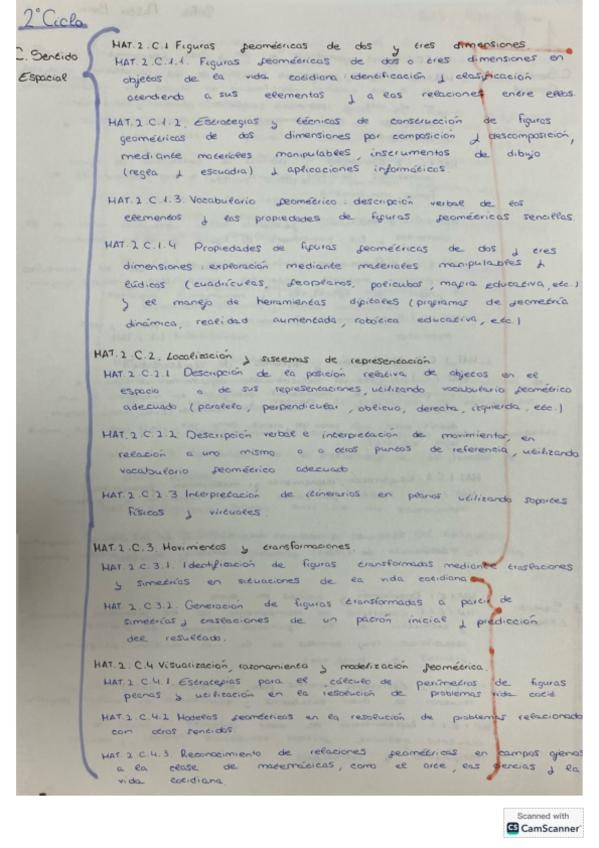 2º Ciclo
C. Sentido
Espacial
MAT.2.C.1 Figuras geométricas de dos y tres dimensiones
MAT.2.C.1.1. Figuras geométricas de dos o tres dimensiones en
objetos de la vida cotidiana: identificación y clasificación
atendiendo a sus elementos y a las relaciones entre ellos.
MAT.2.C.1.2. Estrategias y técnicas de construcción de figuras
geométricas de dos dimensiones por composición y descomposición,
mediante materiales manipulables, instrumentos de dibujo
(regla y escuadra) y aplicaciones informáticas
MAT.2.C.1.3. Vocabulario geométrico: descripción verbal de los
elementos y las propiedades de figuras geométricas sencillas.
MAT.2.C.1.4 Propiedades de figuras geométricas de dos y tres
dimensiones: exploración mediante materiales manipulables y
lúdicos (cuadrículas, geoplanos, policubos, magia educativa, etc.)
y el manejo de herramientas digitales (programas de geometría
dinámica, realidad aumentada, robótica educativa, etc.)
MAT.2.C.2. Localización y sistemas de representación
MAT.2.C.2.1 Descripción de la posición relativa de objetos en el
espacio o de sus representaciones, utilizando vocabulario geométrico
adecuado (paralelo, perpendicular, oblicuo, derecha, izquierda, etc.)
MAT.2.C.2.2 Descripción verbal e interpretación de movimientos, en
relación a uno mismo o a otros puntos de referencia, utilizando
vocabulario geométrico adecuado
MAT.2.C.2.3 Interpretación de itinerarios en planos utilizando soportes
físicos y virtuales.
MAT.2.C.3. Movimientos y transformaciones.
MAT.2.C.3.1. Identificación de figuras transformadas mediante traslaciones
y simetrías en situaciones de la vida cotidiana
MAT.2.C.3.2. Generación de figuras transformadas a partir de
simetrías y traslaciones de un patrón inicial y predicción
del resultado.
MAT.2.C.4 Visualización, razonamiento y modelización geométrica.
MAT.2.C.4.1. Estrategias para el cálculo de perímetros de figuras
planas y utilización en la resolución de problemas vida cotid
MAT.2.C.4.2 Modelos geométricos en la resolución de problemas relacionado
con otros sentidos
MAT.2.C.4.3. Reconocimiento de relaciones geométricas en campos ajenos
a la clase de matemáticas, como el arte, las ciencias y la
vida cotidiana
Scanned with
CS CamScanner